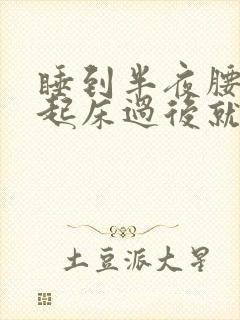 睡到半夜腰
起床過後就
土豆派大星